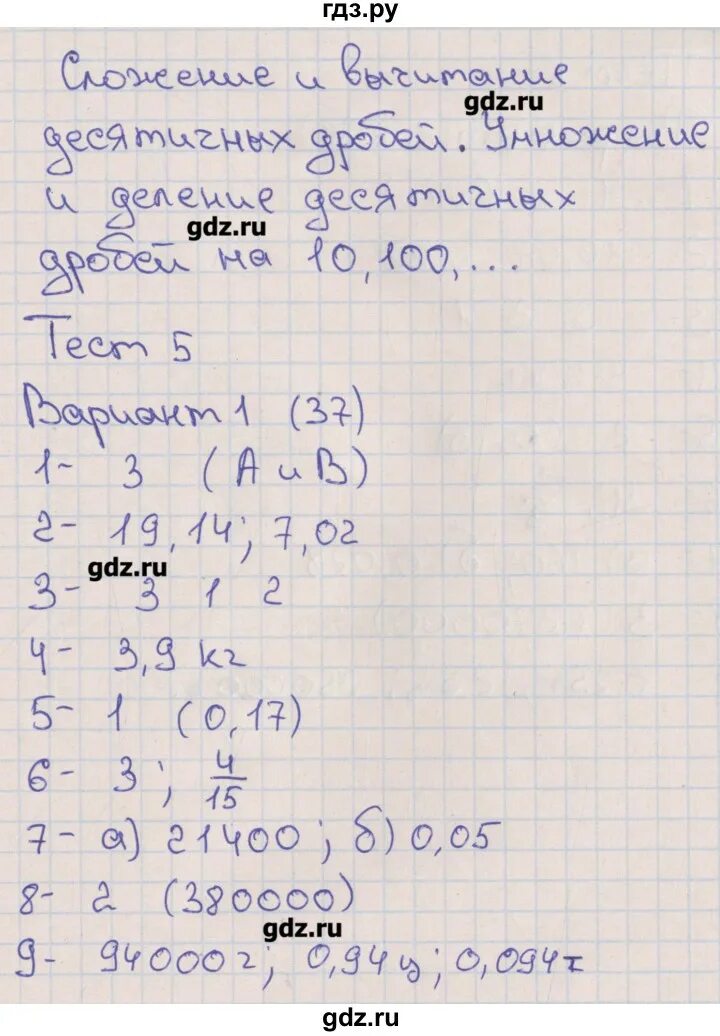 гдз.ру
Сложение и вычитание
gdz.ru
десятичных дробей. Умножение
и деление десятичных
gdz.ru
дробей на 10, 100, ...
Тест 5
Вариант 1 (37)
1- 3 (А и В)
2- 19,14; 7,02
gdz.ru
3- 3 1 2
4- 3,9 кг
5- 1 (0,17)
6- 3; 4/15
7- а) 21400; б) 0,05
8- 2 (380000)
gdz.ru
9- 94000г; 0,94ц; 0,094т
gdz.ru